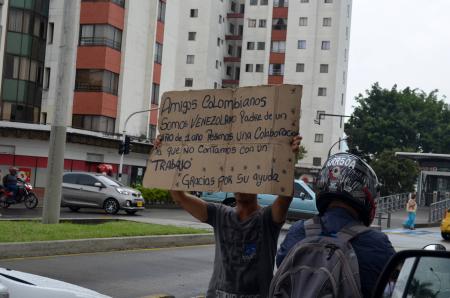 Amigos Colombianos
Somos VENEZOLANO Padre de un
niño de 1 año Pedimos una Colaboración
que no Contamos con un
TRABAJO
Gracias por su ayuda